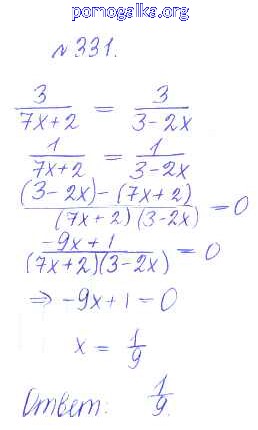 pomogalka.org
№331.
3/(7x+2) = 3/(3-2x)
1/(7x+2) = 1/(3-2x)
((3-2x)-(7x+2))/((7x+2)(3-2x)) = 0
(-9x+1)/((7x+2)(3-2x)) = 0
⇒ -9x+1=0
x = 1/9
Ответ: 1/9.